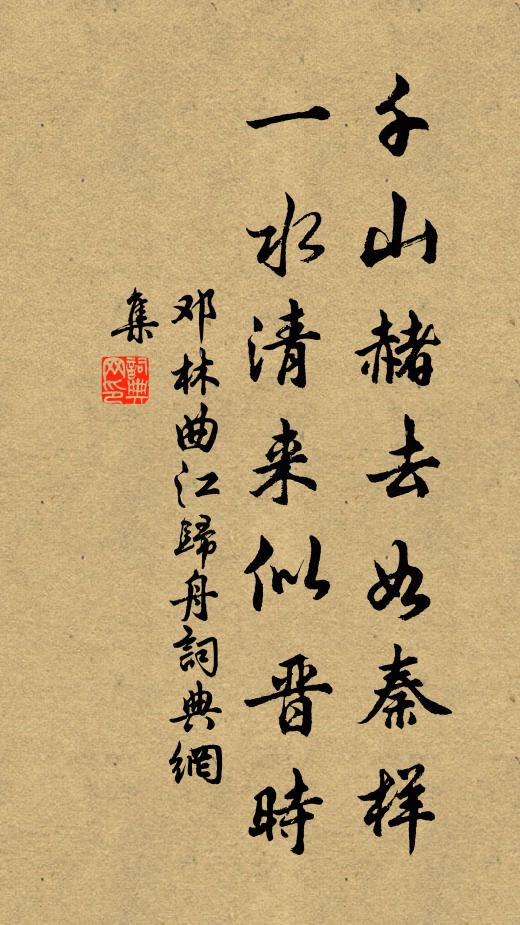 千山赭去如秦样
一水清来似晋時
邓林曲江歸舟詞典網
集
詞典網印